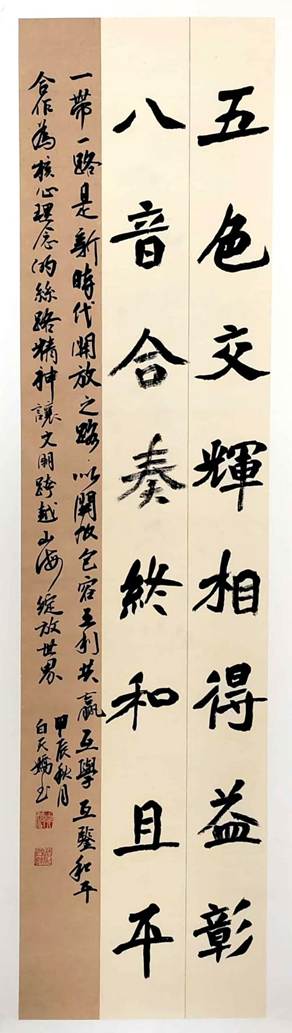 五色交輝相得益彰
八音合奏終和且平
一帶一路是新時代開放之路以開放包容互利共赢互學互鑒和平
合作為核心理念的絲路精神讓文明跨越山海綻放世界
甲辰秋月
白天鵝書